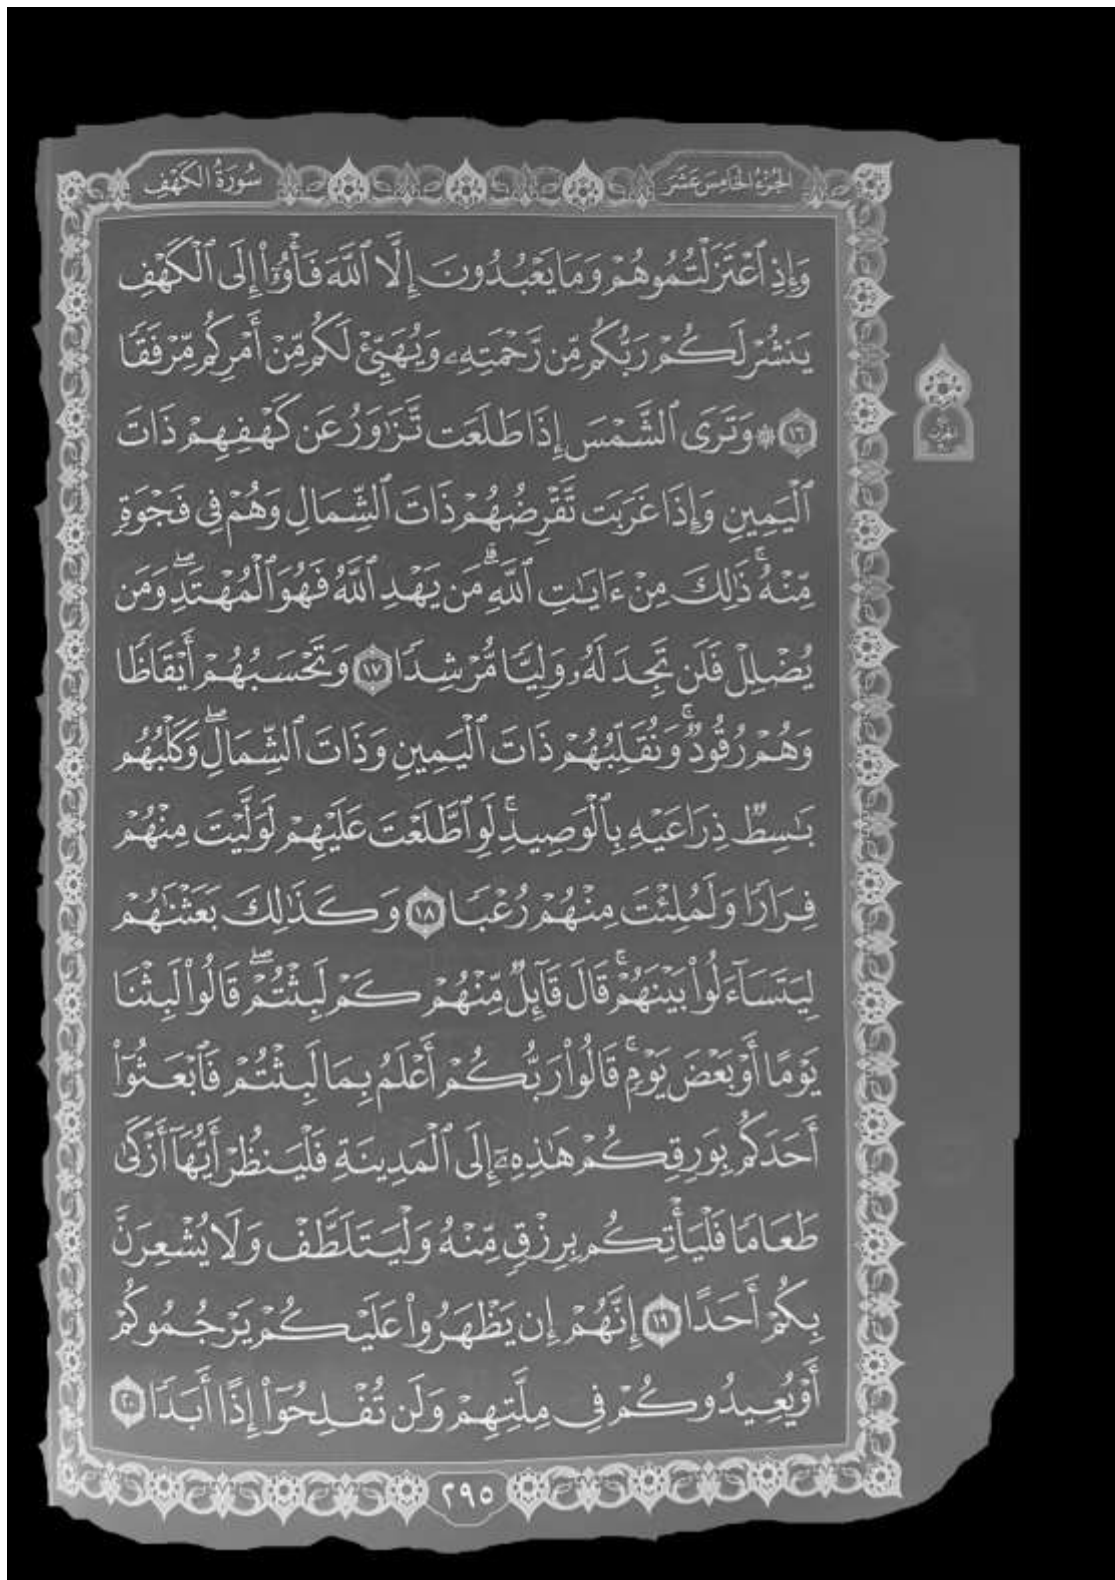 الجُزْءُ الخَامِسَ عَشَرَ
سُورَةُ الكَهْفِ
وَإِذِ ٱعْتَزَلْتُمُوهُمْ وَمَا يَعْبُدُونَ إِلَّا ٱللَّهَ فَأْوُۥٓا۟ إِلَى ٱلْكَهْفِ
يَنشُرْ لَكُمْ رَبُّكُم مِّن رَّحْمَتِهِۦ وَيُهَيِّئْ لَكُم مِّنْ أَمْرِكُم مِّرْفَقًا
١٦ ۞ وَتَرَى ٱلشَّمْسَ إِذَا طَلَعَت تَّزَٰوَرُ عَن كَهْفِهِمْ ذَاتَ
ٱلْيَمِينِ وَإِذَا غَرَبَت تَّقْرِضُهُمْ ذَاتَ ٱلشِّمَالِ وَهُمْ فِى فَجْوَةٍ
مِّنْهُ ۚ ذَٰلِكَ مِنْ ءَايَٰتِ ٱللَّهِ ۗ مَن يَهْدِ ٱللَّهُ فَهُوَ ٱلْمُهْتَدِ ۖ وَمَن
يُضْلِلْ فَلَن تَجِدَ لَهُۥ وَلِيًّا مُّرْشِدًا ١٧ وَتَحْسَبُهُمْ أَيْقَاظًا
وَهُمْ رُقُودٌ ۚ وَنُقَلِّبُهُمْ ذَاتَ ٱلْيَمِينِ وَذَاتَ ٱلشِّمَالِ ۖ وَكَلْبُهُم
بَٰسِطٌ ذِرَاعَيْهِ بِٱلْوَصِيدِ ۚ لَوِ ٱطَّلَعْتَ عَلَيْهِمْ لَوَلَّيْتَ مِنْهُمْ
فِرَارًا وَلَمُلِئْتَ مِنْهُمْ رُعْبًا ١٨ وَكَذَٰلِكَ بَعَثْنَٰهُمْ
لِيَتَسَآءَلُوا۟ بَيْنَهُمْ ۚ قَالَ قَآئِلٌ مِّنْهُمْ كَمْ لَبِثْتُمْ ۖ قَالُوا۟ لَبِثْنَا
يَوْمًا أَوْ بَعْضَ يَوْمٍ ۚ قَالُوا۟ رَبُّكُمْ أَعْلَمُ بِمَا لَبِثْتُمْ فَٱبْعَثُوٓا۟
أَحَدَكُم بِوَرِقِكُمْ هَٰذِهِۦٓ إِلَى ٱلْمَدِينَةِ فَلْيَنظُرْ أَيُّهَآ أَزْكَىٰ
طَعَامًا فَلْيَأْتِكُم بِرِزْقٍ مِّنْهُ وَلْيَتَلَطَّفْ وَلَا يُشْعِرَنَّ
بِكُمْ أَحَدًا ١٩ إِنَّهُمْ إِن يَظْهَرُوا۟ عَلَيْكُمْ يَرْجُمُوكُمْ
أَوْ يُعِيدُوكُمْ فِى مِلَّتِهِمْ وَلَن تُفْلِحُوٓا۟ إِذًا أَبَدًا ٢٠
٢٩٥